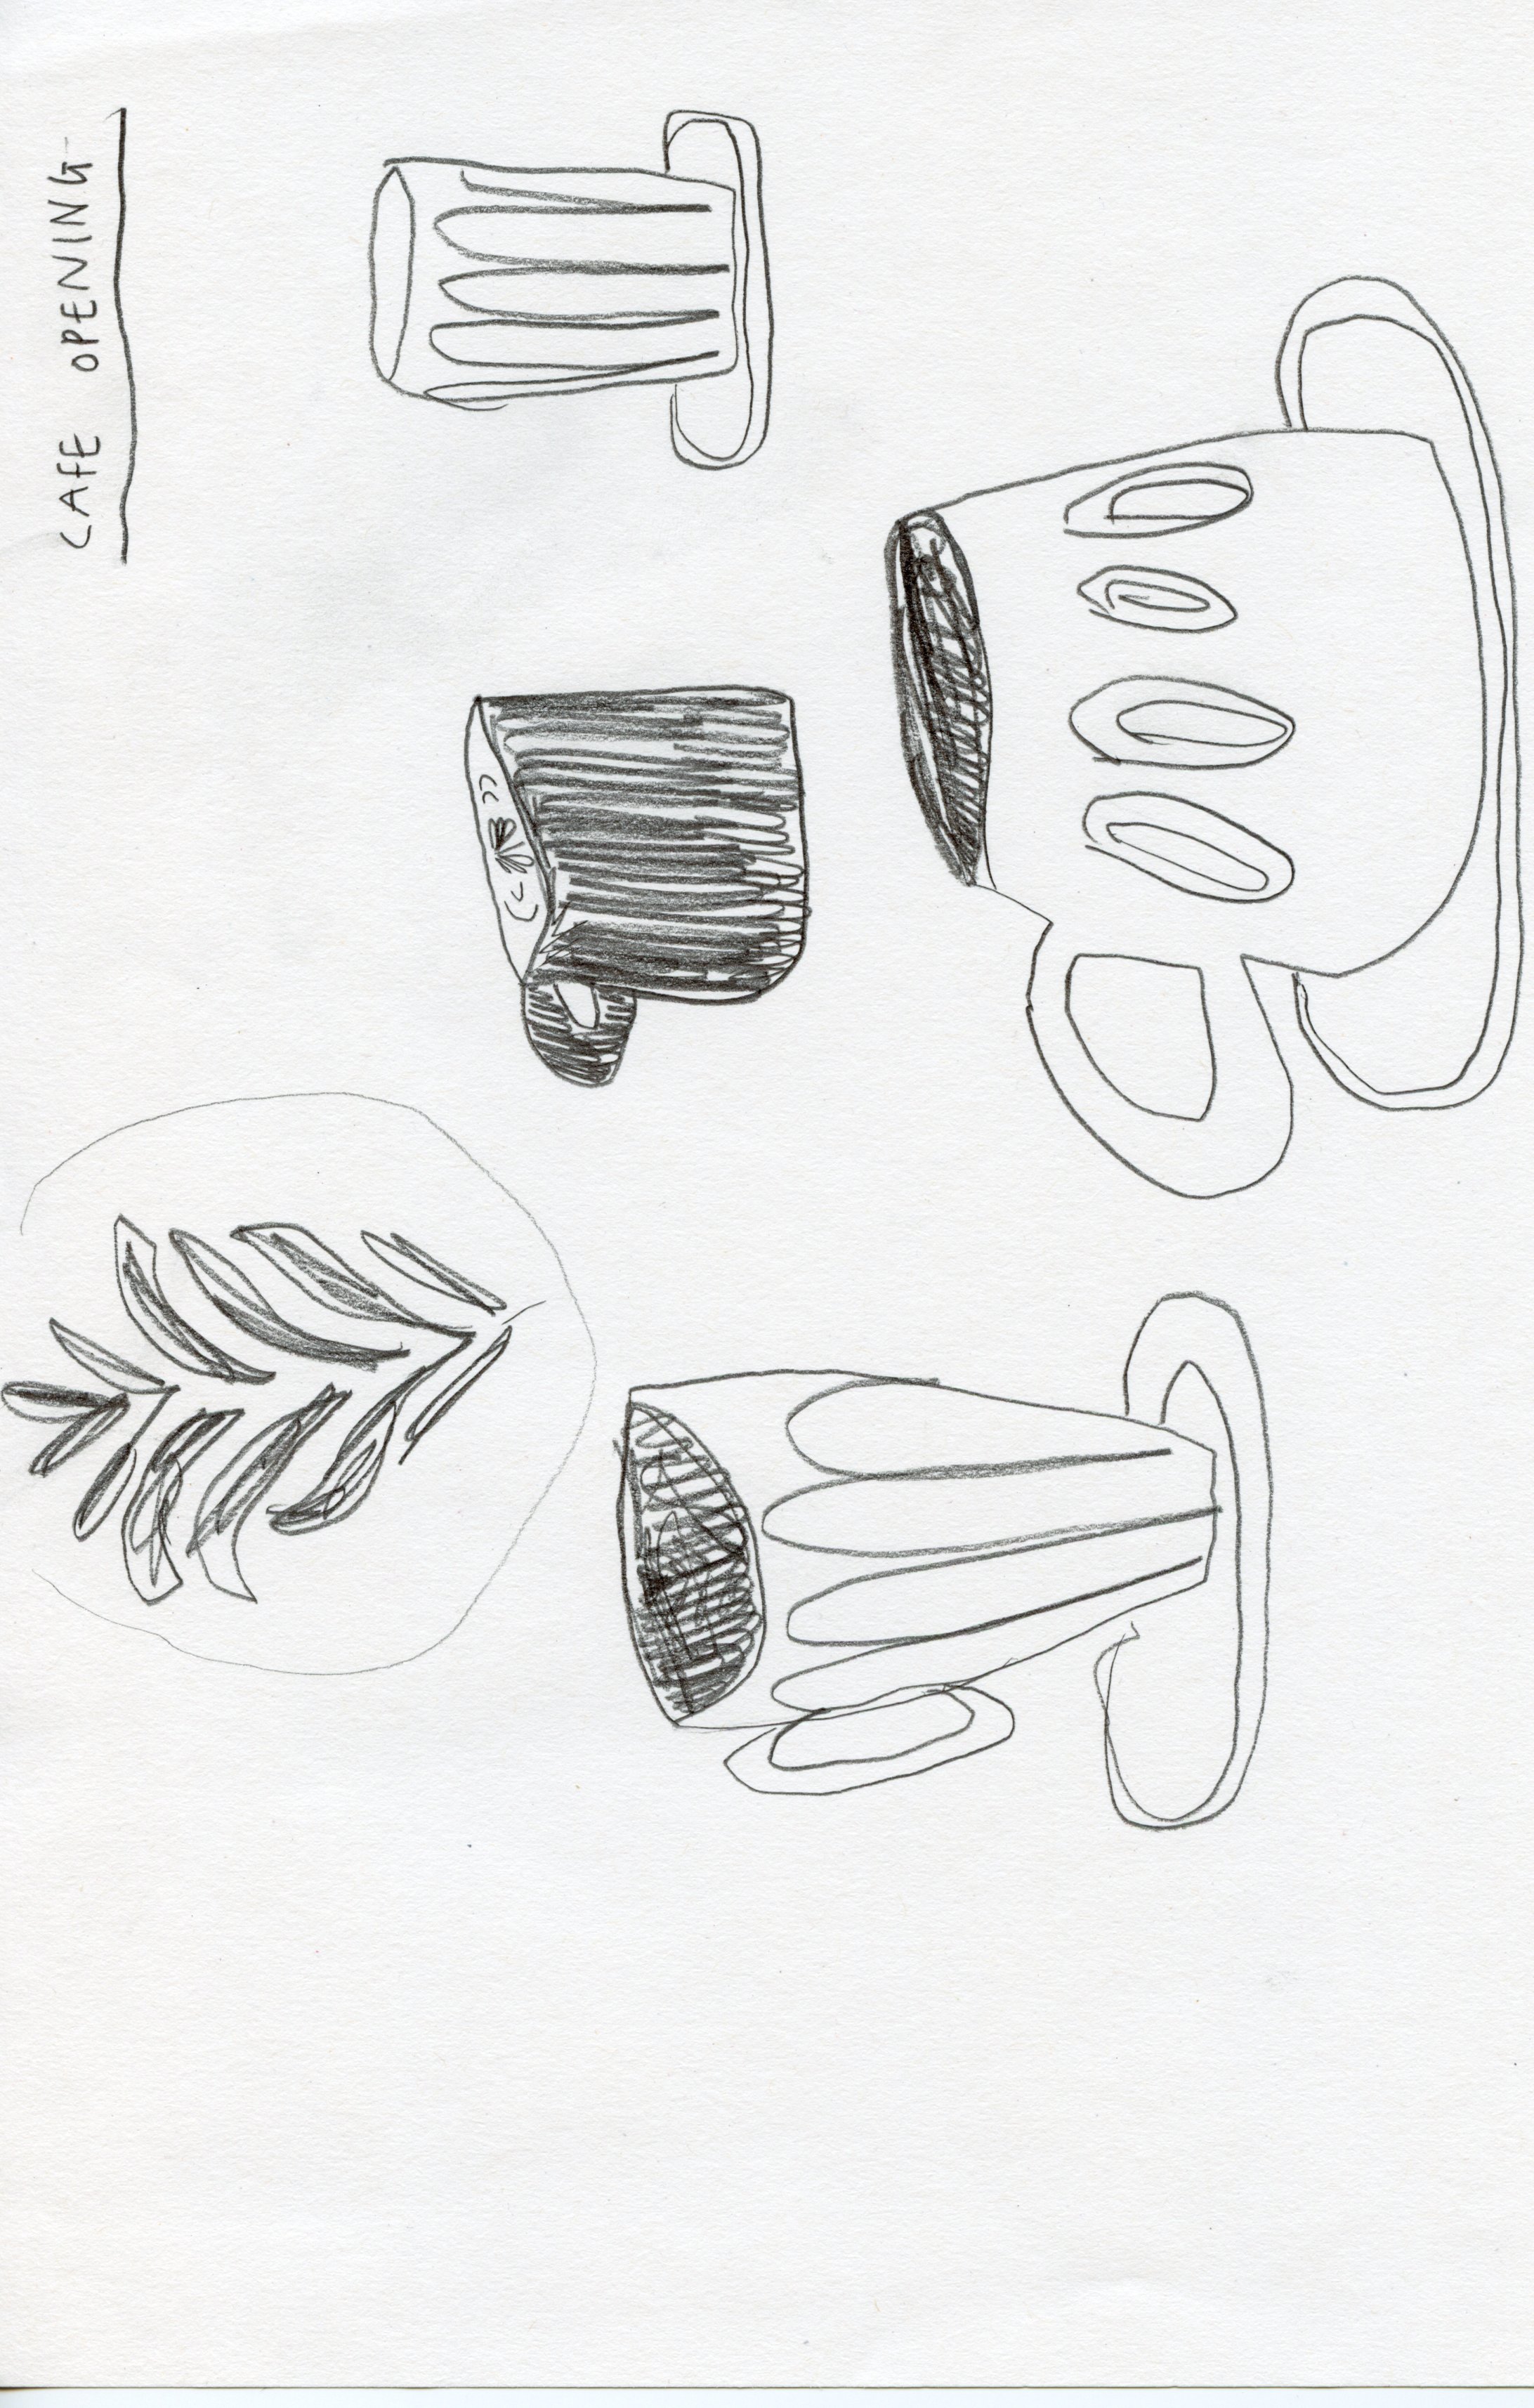 CAFE OPENING